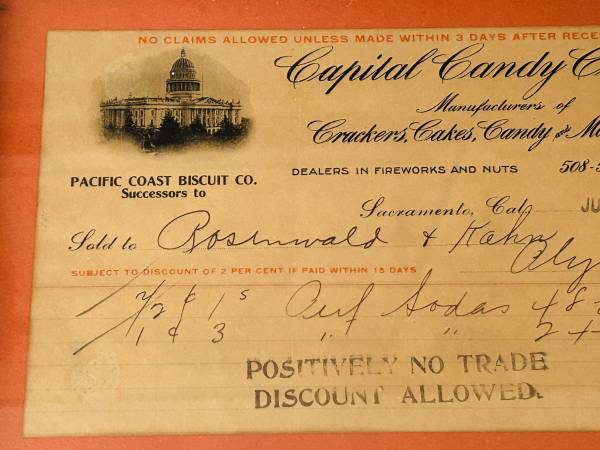 NO CLAIMS ALLOWED UNLESS MADE WITHIN 3 DAYS AFTER RECE
Capital Candy C
Manufacturers of
Crackers, Cakes, Candy and Ma
DEALERS IN FIREWORKS AND NUTS 508-5
PACIFIC COAST BISCUIT CO.
Successors to
Sacramento, Cal. JU
Sold to Rosenwald & Kahn
SUBJECT TO DISCOUNT OF 2 PER CENT IF PAID WITHIN 15 DAYS
Sodas 48
1 ¢ 3 " " 24
POSITIVELY NO TRADE
DISCOUNT ALLOWED.